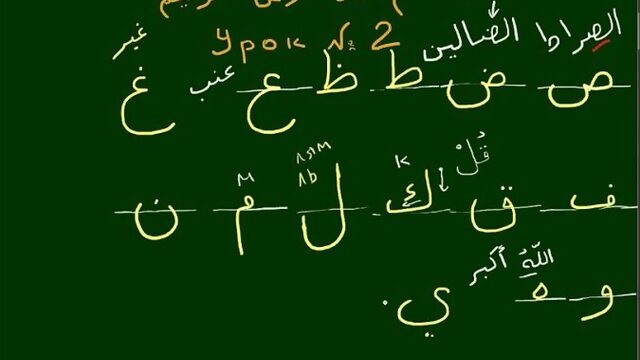 Урок № 2
الصراط الضالين
ص ض ط ظ ع عنب غ غير
قُلْ
ف ق ك к ل ль м م ن
اللّهُ أكبر
و ه ي